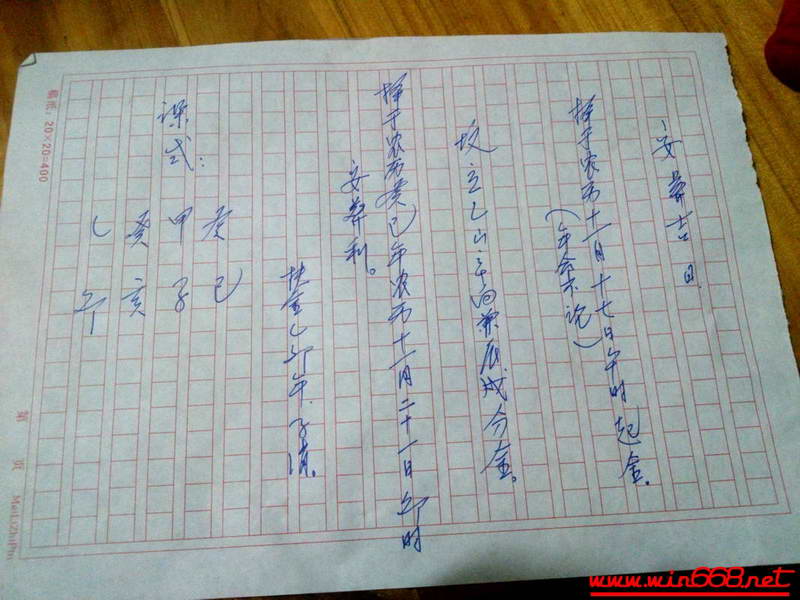 安葬吉日
择于农历十一月十七日午时起金。
(年命不论)
坟立乙山辛向兼辰戌分金。
择于农历癸巳年农历十一月二十一日卯时
安葬利。
扶金乙卯年
课式:
癸巳
甲子
癸亥
乙卯
稿纸: 20×20=400
第 页
www.win668.net